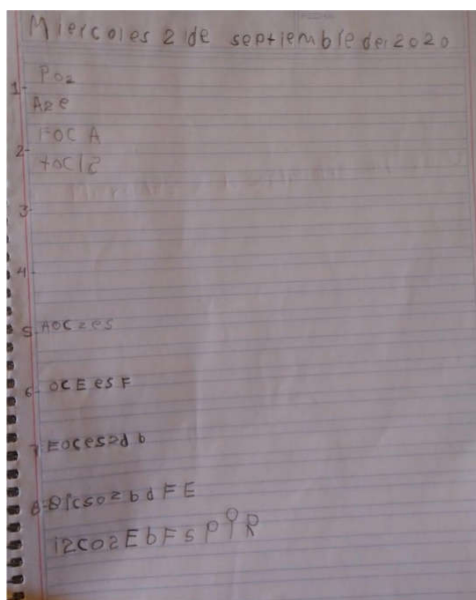 Miercoles 2 de septiembre de 2020
1- Po2
A2e
FOC A
FOC12
2-
3-
4
5 AOCzes
6- OCE es F
7 EOCes2d b
8-8icsozbdFE
12CO2EbFsP